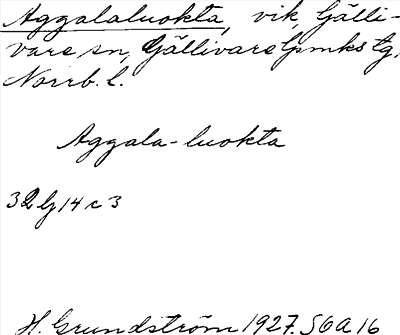 Aggalaluokta, vik, Gälli-
vare sn, Gällivare lpmks tg,
Norrb. l.
Aggala-luokta
32 lj 14 c 3
H. Grundström 1927. SOA 16